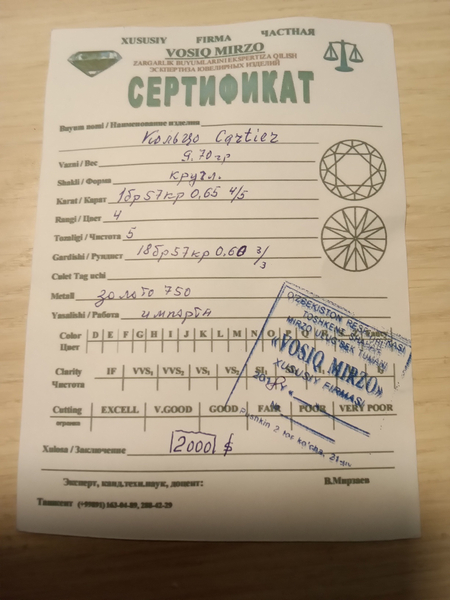 XUSUSIY FIRMA ЧАСТНАЯ
VOSIQ MIRZO
ZARGARLIK BUYUMLARINI EKSPERTIZA QILISH
ЭСКПЕРТИЗА ЮВЕЛИРНЫХ ИЗДЕЛИЙ
СЕРТИФИКАТ
Buyum nomi / Наименование изделия
Кольцо Cartier
Vazni / Вес 9,70гр
Shakli / Форма кругл.
Karat / Карат 1бр57кр 0,65 4/5
Rangi / Цвет 4
Tozaligi / Чистота 5
Gardishi / Рундист 18бр57кр 0,60 3/3
Culet Tag uchi
Metall золото 750
Yasalishi / Работа импортн
Color D E F G H I J K L M N O
Цвет
Clarity IF VVS1 VVS2 VS1 VS2 SI1
Чистота
Cutting EXCELL V.GOOD GOOD FAIR POOR VERY POOR
огранка
Xulosa / Заключение 2000 $
Эксперт, канд.техн.наук, доцент: В.Мирзаев
Ташкент (+99891) 163-04-89, 208-02-29
O'ZBEKISTON RESPUBLIKASI
TOSHKENT SHAHRI
MIRZO ULUG'BEK TUMANI
«VOSIQ MIRZO»
XUSUSIY FIRMASI
Pushkin 2 tor ko'chasi, 21-uy